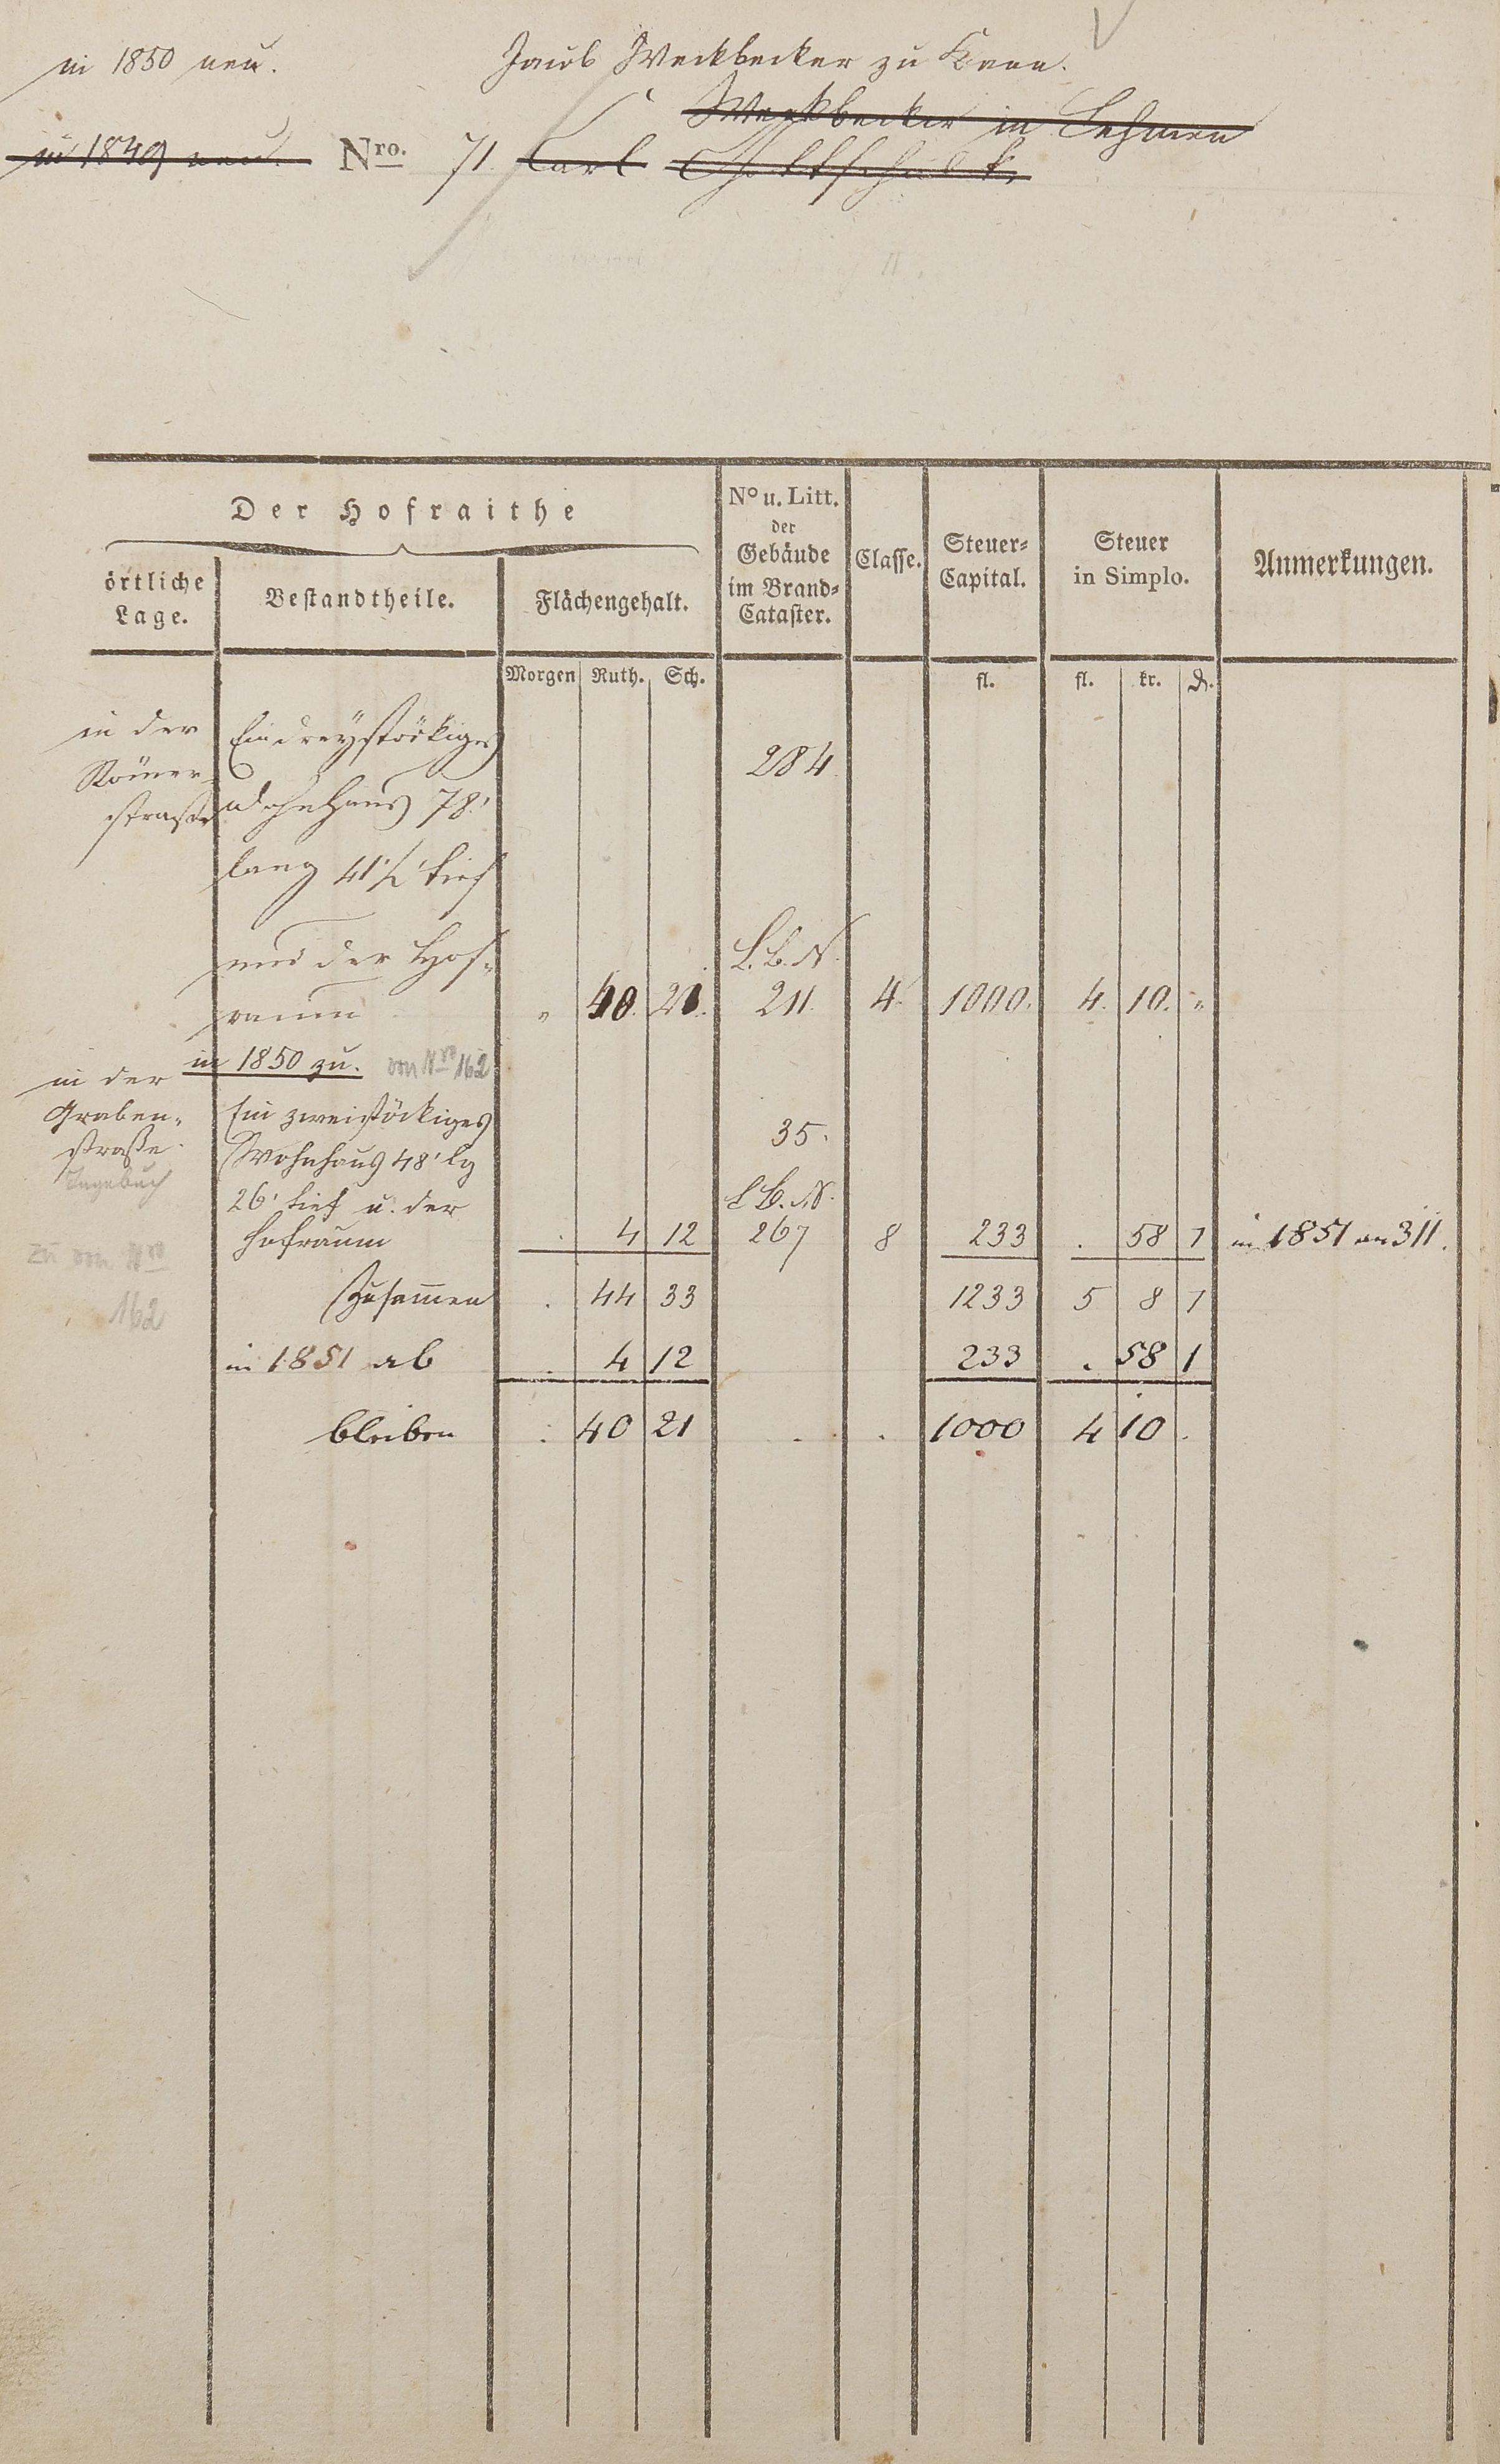 in 1850 neu. Jacob Weckbecker zu
Weckbecker in Lehmen
in 1849 neu. Nro. 71. Carl
Der Hofraithe
örtliche Lage.
Bestandtheile.
Flächengehalt.
No u. Litt. der Gebäude im Brand-Cataster.
Classe.
Steuer-Capital.
Steuer in Simplo.
Anmerkungen.
Morgen Ruth. Sch. fl. fl. kr. ₰.
in der Ein dreystöckiges
284.
Römer- Wohnhaus 78'
straße
lang 41½' tief
und der Hof- L. B. N.
raum " 40. 21. 211. 4. 1000. 4. 10. "
in 1850 zu. von Nro 162
in der
Graben- Ein zweistöckiges
35.
straße. Wohnhaus 48' lg
Tagebuch
26' tief u. der L. B. N.
Hofraum . 4 12 267 8 233 . 58 1 in 1851 an 311.
zu von Nro
162
Zusammen . 44 33 1233 5 8 1
in 1851 ab . 4 12 233 . 58 1
bleiben . 40 21 . . 1000 4 10 .